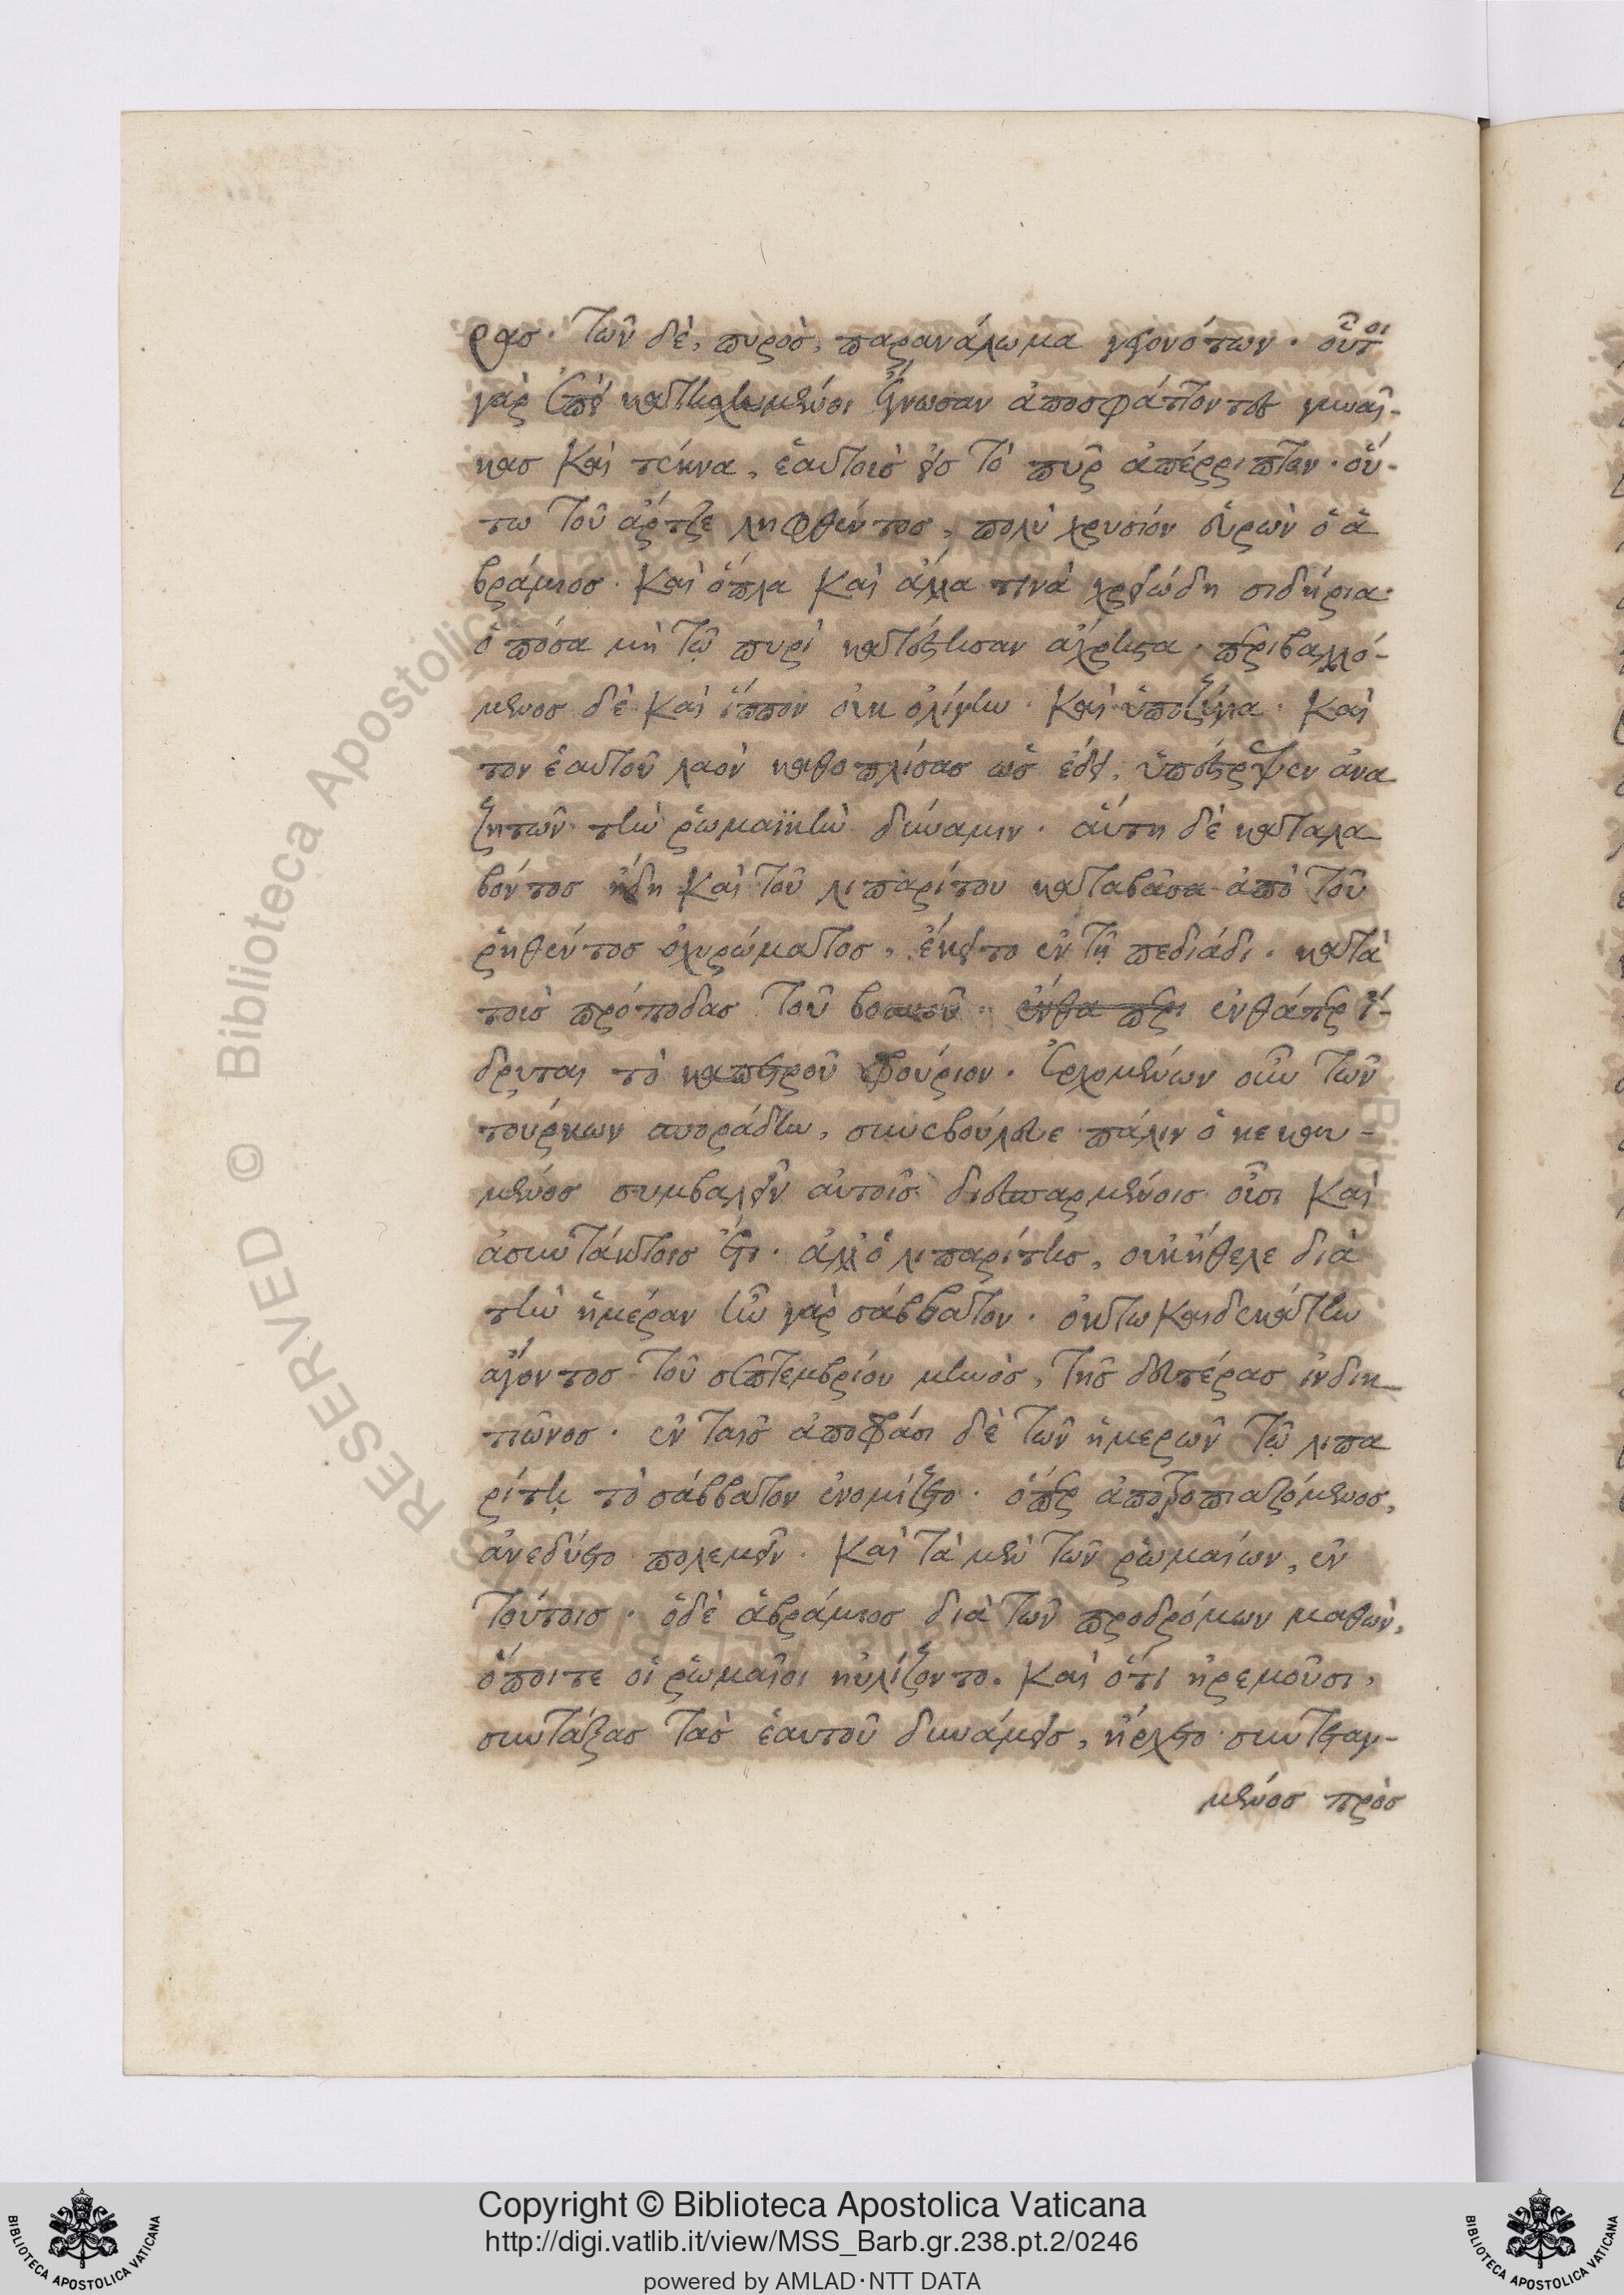 ρας· τῶν δὲ, πυρὸς, παρανάλωμα γεγονότων· οὗτοι
γὰρ ἐπεὶ κατεχόμενοι ἔγνωσαν ἀποσφάττοντες γυναῖ-
κας καὶ τέκνα, ἑαυτοὺς εἰς τὸ πῦρ ἀπέρριπτον· οὕ-
τω τοῦ ἄρτζε ληφθέντος, πολὺ χρυσίον εὑρὼν ὁ ἁ
βράμιος· καὶ ὅπλα καὶ ἄλλα τινὰ χρειώδη σιδήρια·
ὁπόσα μὴ τῷ πυρὶ κατέστησαν ἄχρηστα· περιβαλλό-
μενος δὲ καὶ ἵππον οὐκ ὀλίγην· καὶ ὑποζύγια· καὶ
τὸν ἑαυτοῦ λαὸν καθοπλίσας ὡς ἔδει, ὑπέστρεψεν ἀνα
ζητῶν τὴν ῥωμαϊκὴν δύναμιν· αὕτη δὲ καταλα
βόντος ἤδη καὶ τοῦ λιπαρίτου καταβᾶσα ἀπὸ τοῦ
ῥηθέντος ὀχυρώματος, ἔκειτο ἐν τῇ πεδιάδι· κατὰ
τοὺς πρόποδας τοῦ βουνοῦ· ἔνθα περι ἐνθάπερ ἵ-
δρυται τὸ καπετροῦ φρούριον· ἐρχομένων οὖν τῶν
τούρκων σποράδην, συνεβούλευε πάλιν ὁ κεκαυ-
μένος συμβαλεῖν αὐτοῖς διεσπαρμένοις οὖσι καὶ
ἀσυντάκτοις ἔτι· ἀλλ' ὁ λιπαρίτης, οὐκ ἤθελε διὰ
τὴν ἡμέραν ἦν γὰρ σάββατον· ὀκτωκαιδεκάτην
ἄγοντος τοῦ σεπτεμβρίου μηνὸς, τῆς δευτέρας ἰνδικ
τιῶνος· ἐν ταῖς ἀποφράσι δὲ τῶν ἡμερῶν τῷ λιπα
ρίτῃ τὸ σάββατον ἐνομίζετο· ὅπερ ἀποτροπιαζόμενος,
ἀνεδύετο πολεμεῖν· καὶ τὰ μὲν τῶν ῥωμαίων, ἐν
τούτοις· ὁ δὲ ἁβράμιος διὰ τῶν προδρόμων μαθὼν,
ὅποι τε οἱ ῥωμαῖοι ηὐλίζοντο. καὶ ὅτι ἠρεμοῦσι,
συντάξας τὰς ἑαυτοῦ δυνάμεις, ἤρχετο συντεταγ-
μένος πρὸς
RESERVED © Biblioteca Apostolica Vaticana
Copyright © Biblioteca Apostolica Vaticana
http://digi.vatlib.it/view/MSS_Barb.gr.238.pt.2/0246
powered by AMLAD·NTT DATA
BIBLIOTECA APOSTOLICA VATICANA
BIBLIOTECA APOSTOLICA VATICANA